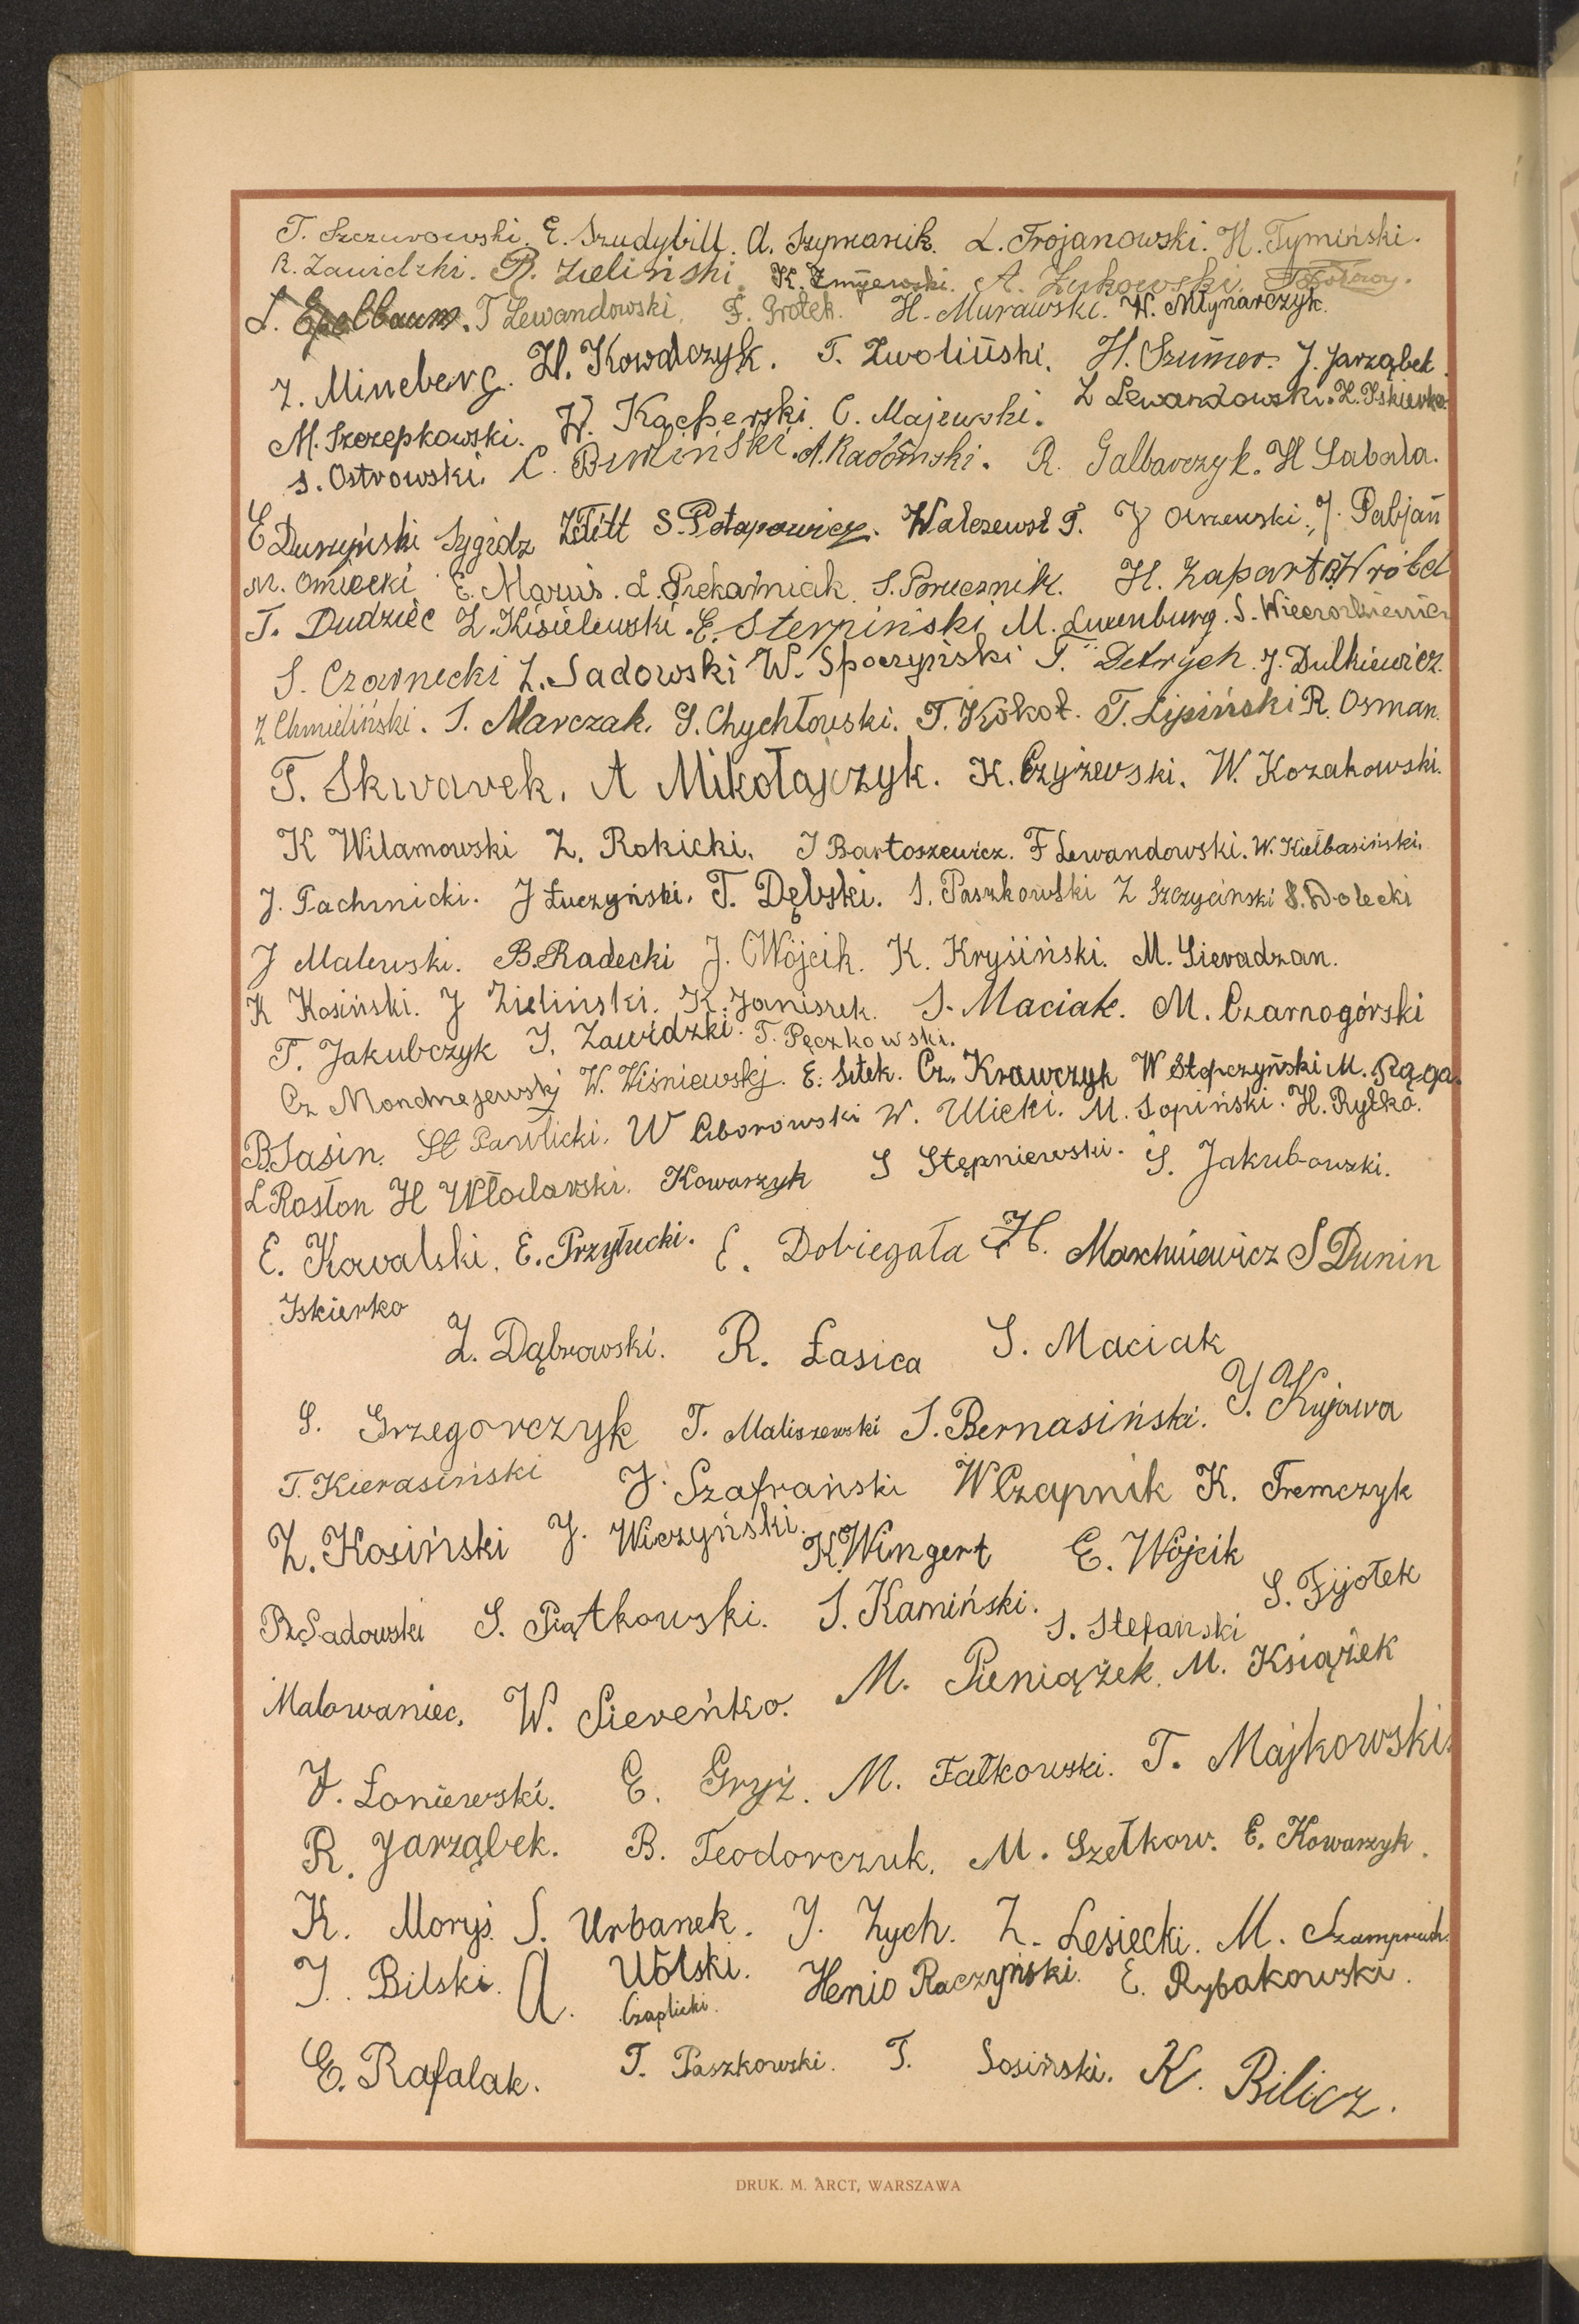 T. Szczurowski. E. Szudybill. A. Szymanik. L. Trojanowski. H. Tymiński.
R. Zawidzki. B. Zieliński. K. Żmijewski. A. Żukowski.
L. T Lewandowski. F. Grotek. H. Murawski. W. Młynarczyk.
Z. Mineberg. W. Kowalczyk. T. Zwoliński. H. Szumer. J. Jarząbek.
M. Szczepkowski. W. Kacperski. C. Majewski. Z Lewandowski. Z. Iskierko
S. Ostrowski. C. Bimliński. A. Radomski. R. Galbarczyk. H Sabala.
E Duszyński Sygidz Z. Titt S. Potapowicz. Walczewsk T. J Olszewski. J. Pabjan
M. Omiecki E. Maruś. L. Piekarniak. S. Porucznik. H. Zaparta B Wróbel
T. Dudziec Z. Kisielewski. E. Sterpiński M. Luxenburg. S. Wieczorkiewicz
S. Czarnecki Z. Sadowski W. Spoczyński T. Detrych. J. Dulkiewicz.
Z Chmieliński. S. Marczak. S. Chychłowski. T. Kokot. T. Lipiński R. Osman.
T. Skwarek. A Mikołajczyk. K. Czyżewski. W. Kozakowski.
K Wilamowski Z. Rokicki. J Bartoszewicz. F Lewandowski. W. Kiełbasiński.
J. Pachnicki. J Łuczyński. T. Dębski. S. Paszkowski Z Szczyciński S. Dolecki
J Malewski. B. Radecki J. Wójcik. K. Krysiński. M. Sieradzan.
K Kosiński. J Zieliński. K. Janiszek. S. Maciak. M. Czarnogórski
T. Jakubczyk J. Zawidzki. T. Pęczkowski.
Cz Mondrejewski W. Wiśniewski. E. Sitek. Cz. Krawczyk W Stopczyński M. Rąga.
B. Sasin. St Pawlicki. W Ciborowski W. Ulicki. M. Sopiński. H. Rytko.
L Rosłon H Włodarski. Kowarzyk S Stępniewski. S. Jakubowski.
E. Kowalski. E. Przyłucki. E. Dobiegała H. Marchwiewicz S Dunin
Iskierko Z. Dąbrowski. R. Łasica S. Maciak
S. Grzegorczyk T. Maliszewski S. Bernasiński. J. Kujawa
T. Kierasiński J. Szafrański W Czapnik K. Tremczyk
Z. Kosiński J. Wiczyński. K. Wingert E. Wójcik
R. Sadowski S. Piątkowski. S. Kamiński. S. Stefański S. Fijołek
Malowaniec. W. Siereńko. M. Pieniążek. M. Książek
J. Łoniewski. E. Gryź. M. Fałkowski. T. Majkowski.
R. Jarząbek. B. Teodorczuk. M. Szełkow. E. Kowarzyk.
K. Moryś. S. Urbanek. J. Zych. Z. Lesiecki. M.
J. Bilski. A. Wolski. Henio Raczyński. E. Rybakowski.
Czaplicki.
E. Rafalak. T. Paszkowski. T. Sosiński. K. Bilicz.
DRUK. M. ARCT, WARSZAWA